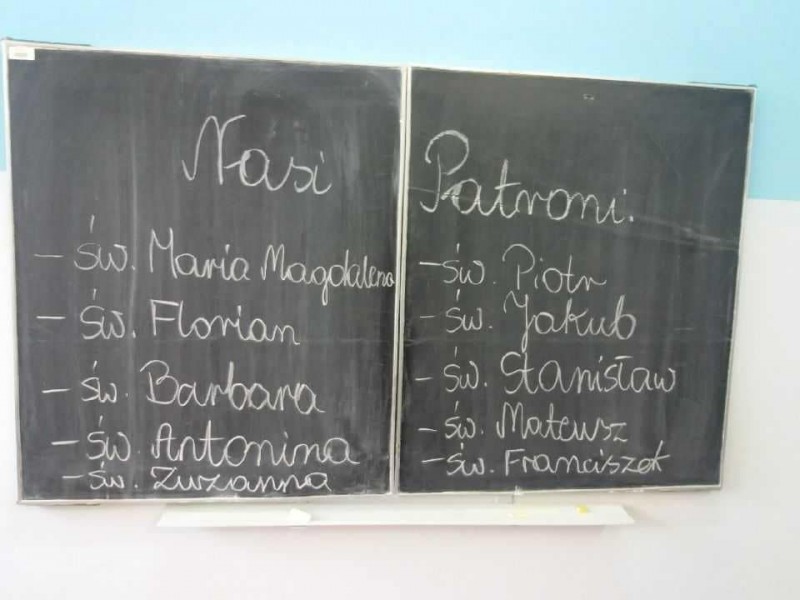 Nasi Patroni:
- św. Maria Magdalena
- św. Florian
- św. Barbara
- św. Antonina
- św. Zuzanna
- św. Piotr
- św. Jakub
- św. Stanisław
- św. Mateusz
- św. Franciszek